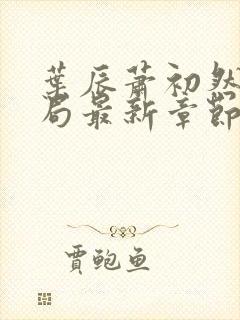 葉辰蕭初然
局最新章節
賈鮑魚